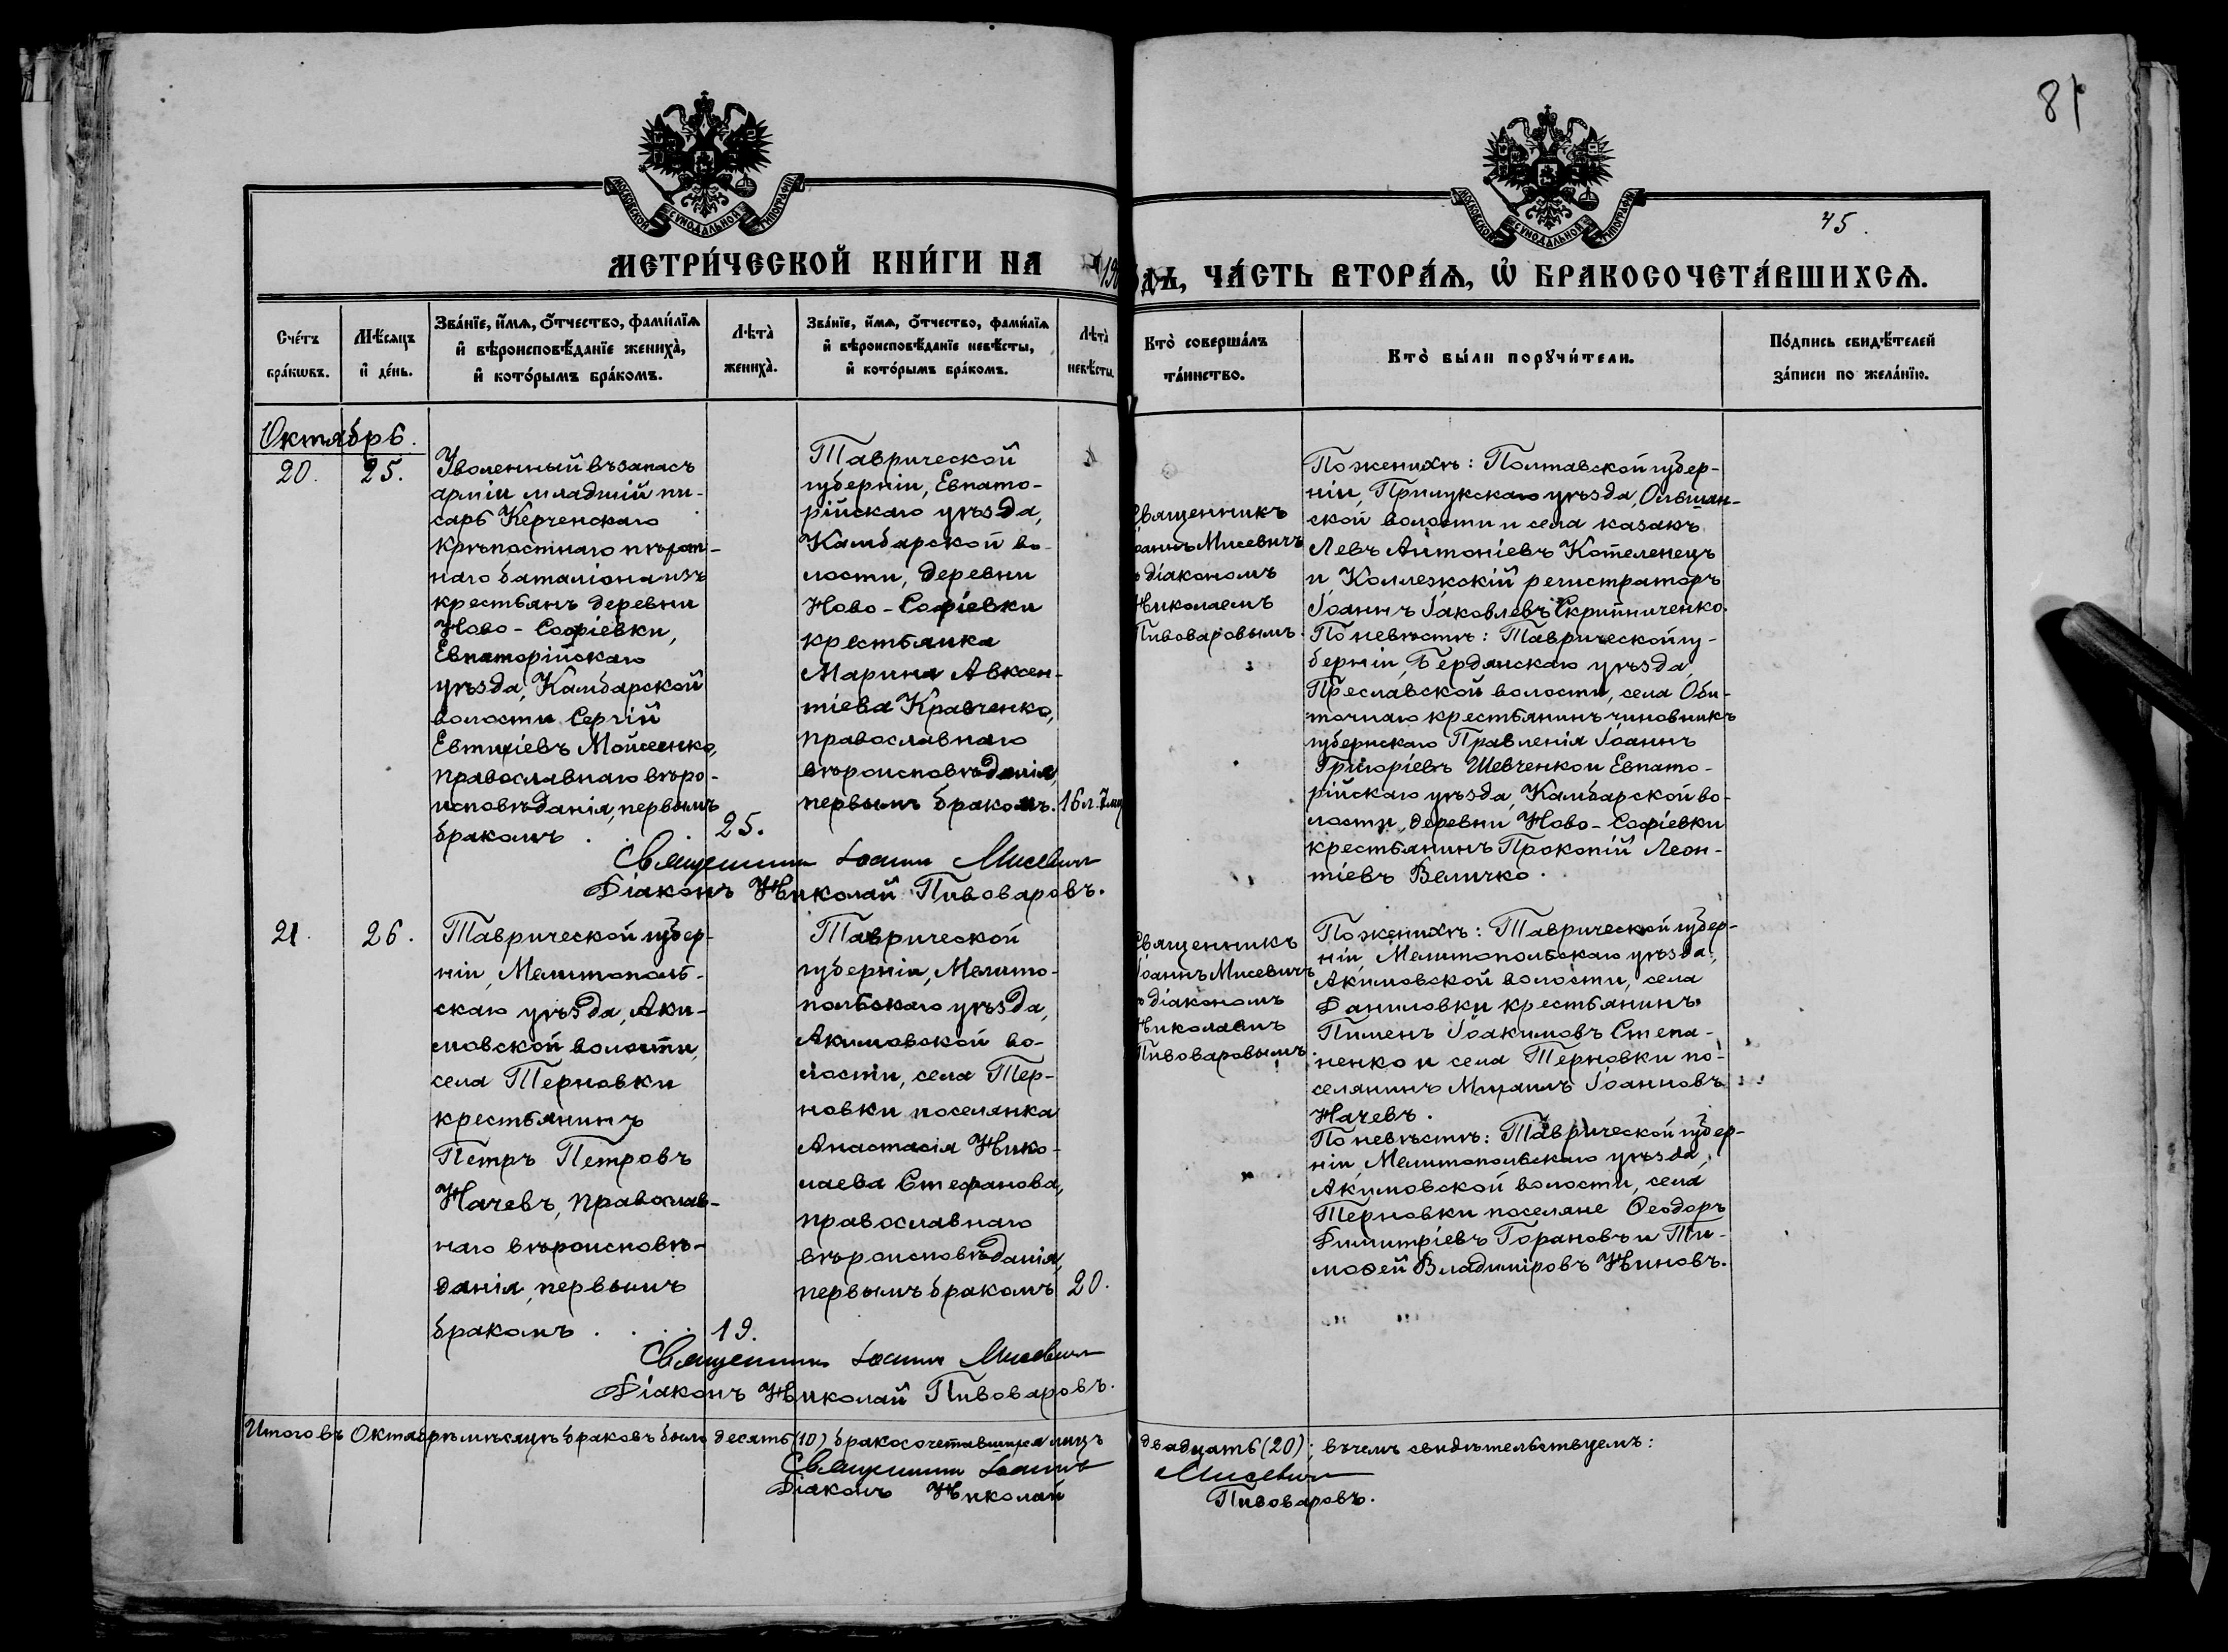 81
45.
МОСКОВСКОЙ СѴНОДАЛЬНОЙ ТИПОГРАФІИ
МОСКОВСКОЙ СѴНОДАЛЬНОЙ ТИПОГРАФІИ
МЕТРИ́ЧЕСКОЙ КНИ́ГИ НА
ЧА́СТЬ ВТОРА́Ѧ, Ѡ҆ БРАКОСОЧЕТА́ВШИХСѦ.
Сче́тъ
бра́кѡвъ.
Мѣ́сяцъ
и҆ де́нь.
Зва́нїе, и҆́мѧ, ѻ҆́тчество, фами́лїѧ
и҆ вѣроисповѣ́данїе жениха̀,
и҆ кото́рымъ бра́комъ.
Лѣта̀
жениха̀.
Зва́нїе, и҆́мѧ, ѻ҆́тчество, фами́лїѧ
и҆ вѣроисповѣ́данїе невѣ́сты,
и҆ кото́рымъ бра́комъ.
Лѣта̀
невѣ́сты.
Кто̀ соверша́лъ
та́инство.
Кто̀ бы́ли порꙋчи́тели.
По́дпись свидѣ́телей
за́писи по жела́нїю.
Октябрь.
20.
25.
Уволенный въ запасъ
арміи младшій пи-
сарь Керченскаго
крѣпостнаго пѣхот-
наго баталіона изъ
крестьянъ деревни
Ново-Софіевки,
Евпаторійскаго
уѣзда, Камбарской
волости Сергій
Евтихіевъ Мойсеенко,
православнаго вѣро-
исповѣданія, первымъ
бракомъ .
25.
Таврической
губерніи, Евпато-
рійскаго уѣзда,
Камбарской во-
лости, деревни
Ново-Софіевки
крестьянка
Марина Авксен-
тіева Кравченко,
православнаго
вѣроисповѣданія,
первымъ бракомъ.
16 л. 7 мц
Священникъ Іоаннъ Мисевичъ
Діаконъ Николай Пивоваровъ.
Священникъ
Іоаннъ Мисевичъ
діакономъ
Николаемъ
Пивоваровымъ.
По женихѣ: Полтавской губер-
ніи, Прилукскаго уѣзда, Ольшан-
ской волости и села казакъ
Левъ Антоніевъ Котеленецъ
и Коллежскій регистраторъ
Іоаннъ Іаковлевъ Скрипниченко.
По невѣстѣ: Таврической гу-
берніи, Бердянскаго уѣзда,
Преславской волости, села Оби-
точнаго крестьянинъ чиновникъ
губернскаго Правленія Іоаннъ
Григоріевъ Шевченко и Евпато-
рійскаго уѣзда, Камбарской во-
лости, деревни Ново-Софіевки
крестьянинъ Прокопій Леон-
тіевъ Величко.
21.
26.
Таврической губер-
ніи, Мелитополь-
скаго уѣзда, Аки-
мовской волости,
села Терновки
крестьянинъ
Петръ Петровъ
Начевъ, православ-
наго вѣроисповѣ-
данія, первымъ
бракомъ . . . .
19.
Таврической
губерніи, Мелито-
польскаго уѣзда,
Акимовской во-
лости, села Тер-
новки поселянка
Анастасія Нико-
лаева Стефанова,
православнаго
вѣроисповѣданія,
первымъ бракомъ
20.
Священникъ Іоаннъ Мисевичъ
Діаконъ Николай Пивоваровъ.
Священникъ
Іоаннъ Мисевичъ
діакономъ
Николаемъ
Пивоваровымъ.
По женихѣ: Таврической губер-
ніи, Мелитопольскаго уѣзда,
Акимовской волости, села
Даниловки крестьянинъ
Пименъ Іоакимовъ Степа-
ненко и села Терновки по-
селянинъ Михаилъ Іоанновъ
Начевъ.
По невѣстѣ: Таврической губер-
ніи, Мелитопольскаго уѣзда,
Акимовской волости, села
Терновки поселяне Ѳеодоръ
Димитріевъ Горановъ и Ти-
моѳей Владиміровъ Ниновъ.
Итого въ Октябрѣ мѣсяцѣ браковъ было десять (10) бракосочетавшихся лицъ двадцать (20); въ чемъ свидѣтельствуемъ:
Священникъ Іоаннъ Мисевичъ
Діаконъ Николай Пивоваровъ.